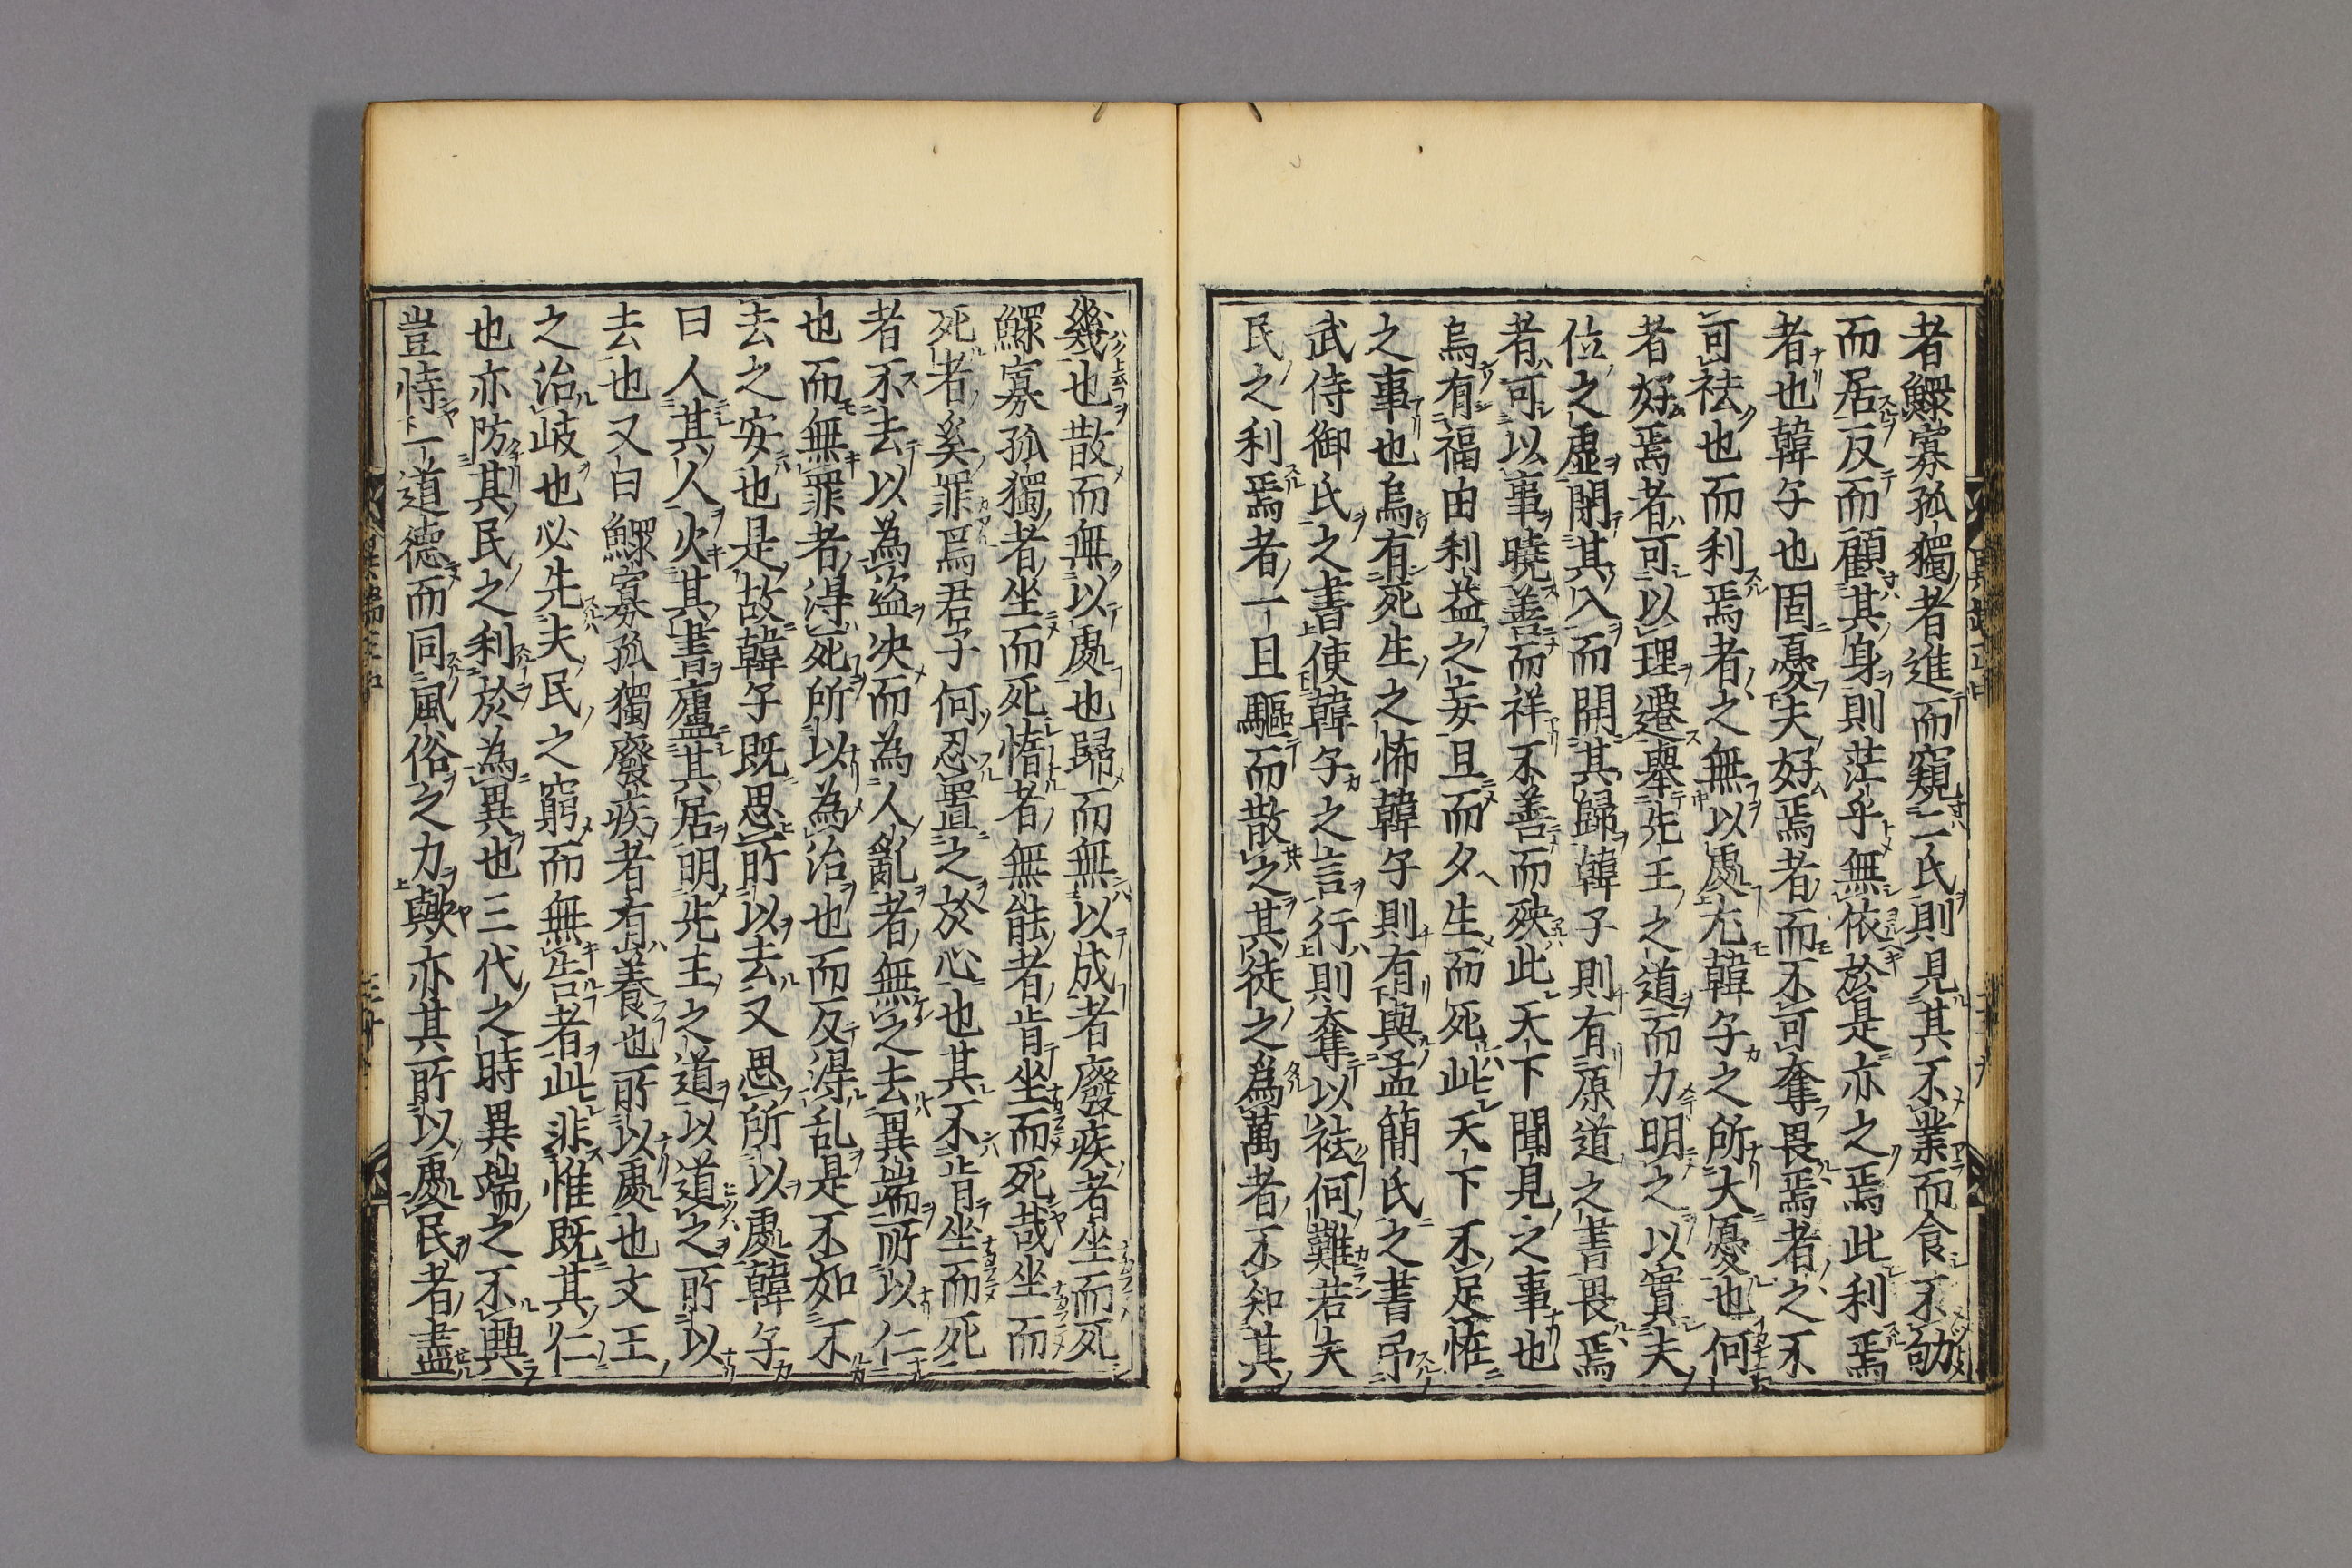 者鰥寡孤獨者進而窺二氏則見其不業而食不劬
而居反而顧其身則茫乎無依於是亦之焉此利焉
者也韓子也固憂夫好焉者而不可奪畏焉者之不
可祛也而利焉者之無以處尤韓子之所大憂也何
者好焉者可以理遷舉先王之道而力明之以實夫
位之虛閉其入而開其歸韓子則有原道之書畏焉
者可以事曉善而祥不善而殃此天下聞見之事也
烏有福由利益之妄旦而夕生而死此天下不足怪
之事也烏有死生之怖韓子則有與孟簡氏之書弔
武侍御氏之書使韓子之言行則奪以祛何難若夫
民之利焉者一旦驅而散之其徒之爲萬者不知其
幾也散而無以處也歸而無以成者廢疾者坐而死
鰥寡孤獨者坐而死惰者無能者肯坐而死哉坐而
死者奚罪焉君子何忍置之於心也其不肯坐而死
者不去以為盜决而為人亂者無之去異端所以仁
也而無罪者淂死所以為治也而反淂乱是不如不
去之安也是故韓子既思所以去又思所以處韓子
曰人其人火其書廬其居明先王之道以道之所以
去也又曰鰥寡孤獨廢疾者有養也所以處也文王
之治岐也必先夫民之窮而無告者此非惟既其仁
也亦防其民之利於為異也三代之時異端之不興
豈恃一道德而同風俗之力歟亦其所以處民者盡